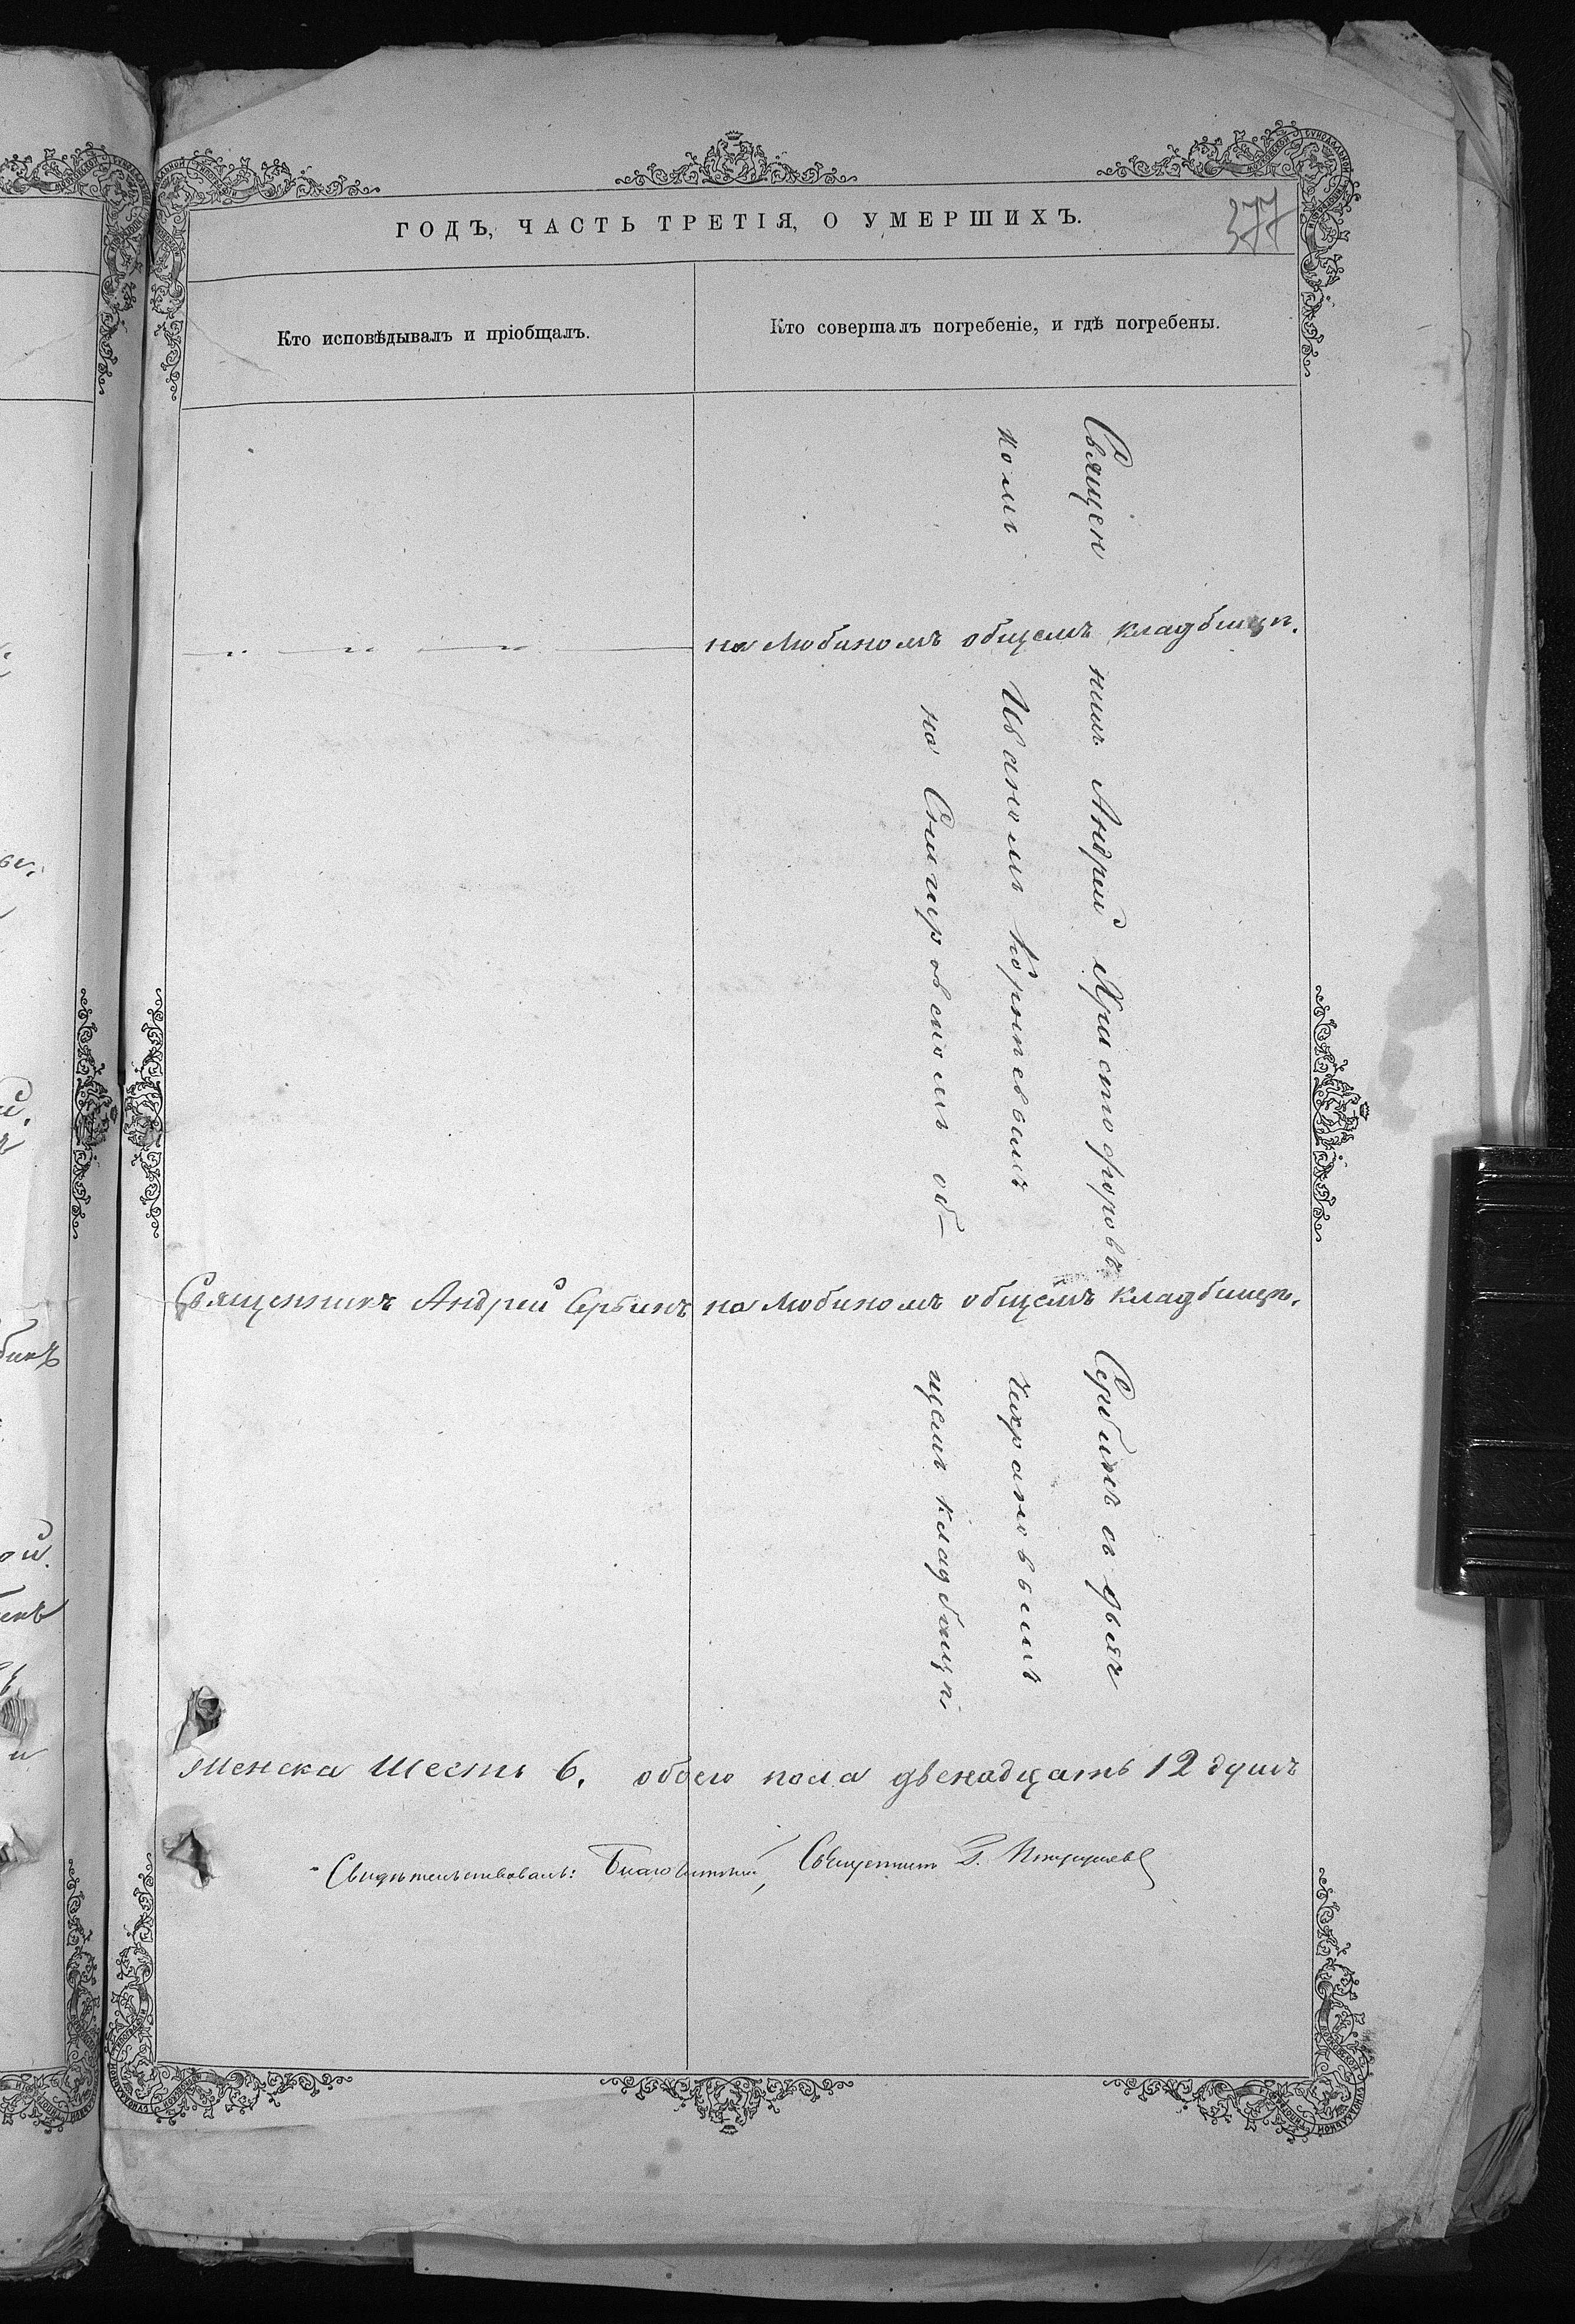 377
ГОДЪ, ЧАСТЬ ТРЕТІЯ, О УМЕРШИХЪ.
Кто исповѣдывалъ и пріобщалъ.
Кто совершалъ погребеніе, и гдѣ погребены.
на Любиномъ общемъ кладбищѣ.
Священникъ Андрей Сербинъ
на Любиномъ общемъ кладбищѣ.
Священ никъ Андрей Христофоровъ Сербинъ съ дьяч
комъ Иваномъ Корнѣевымъ
на об-
щемъ кладбищѣ
женска шесть 6. обоего пола двенадцать 12 душъ
Свидѣтельствовалъ: Благочинный, Священникъ